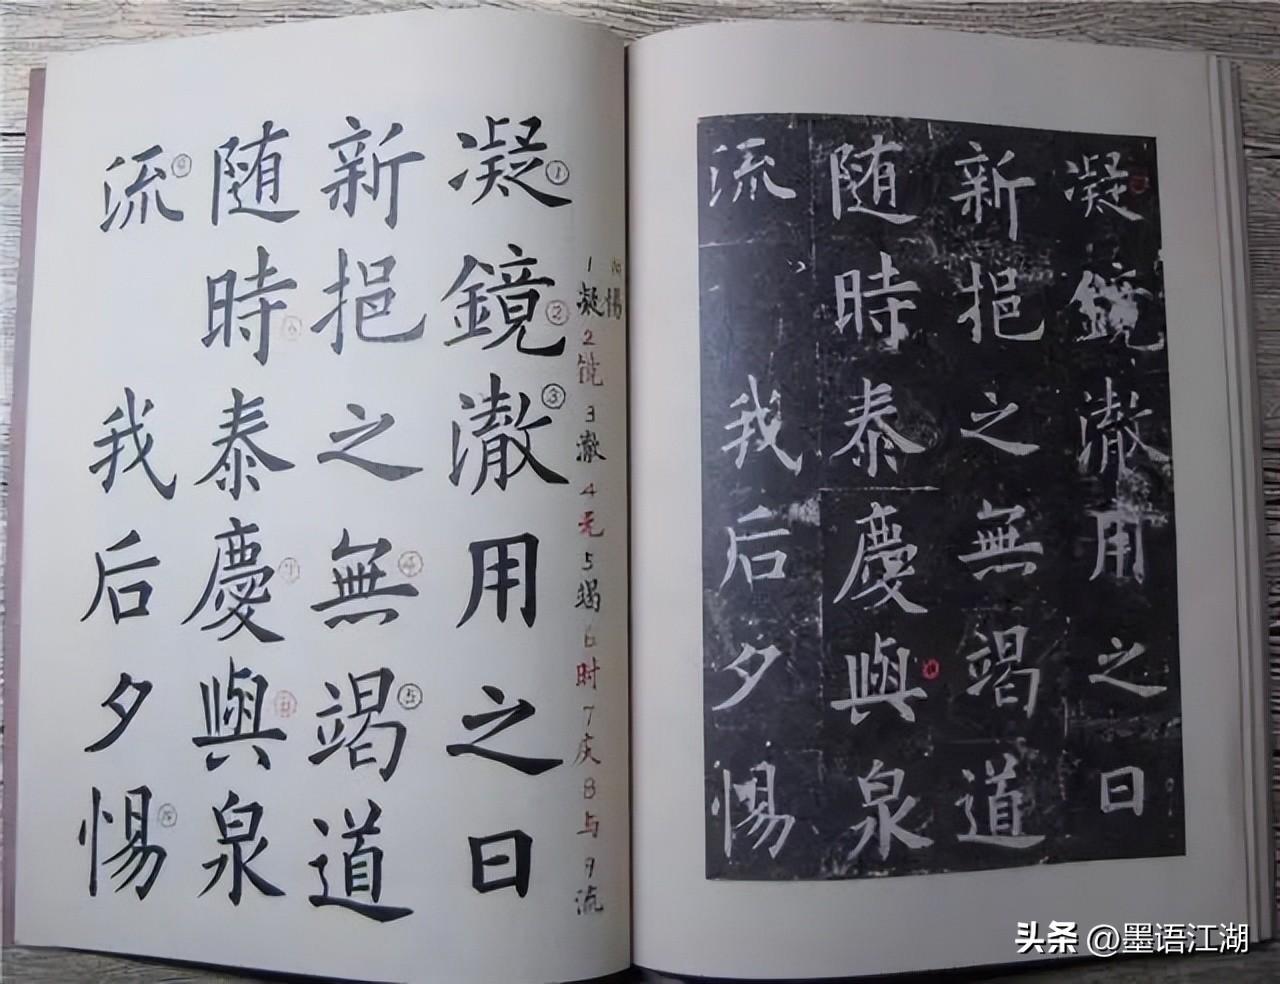 凝鏡澈用之日
新挹之無竭道
随時泰慶與泉
流我后夕惕
1凝2镜3澈4无5竭6时7庆8与9流
惕
凝鏡澈用之日
新挹之無竭道
随時泰慶與泉
流我后夕惕
头条 @墨语江湖